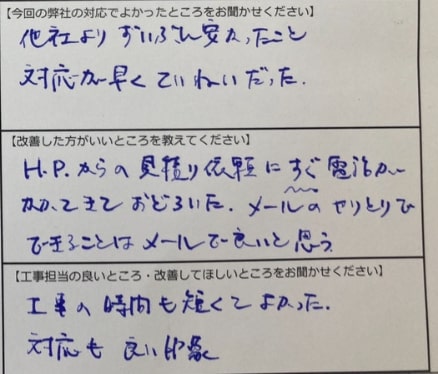 【今回の弊社の対応でよかったところをお聞かせください】
他社よりずいぶん安かったこと
対応が早くていねいだった.
【改善した方がいいところを教えてください】
H.P.からの見積り依頼にすぐ電話が
かかってきておどろいた.メールのやりとりで
できることはメールで良いと思う
【工事担当の良いところ・改善してほしいところをお聞かせください】
工事の時間も短くてよかった.
対応も良い印象